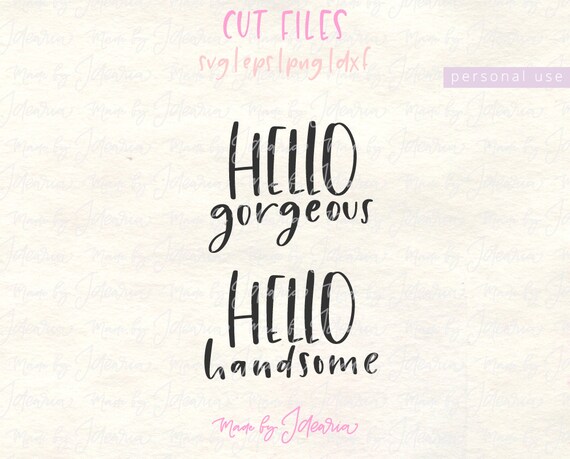 CUT FILES
svg|eps|png|dxf
personal use
HELLO
gorgeous
HELLO
handsome
Made by Jdearia